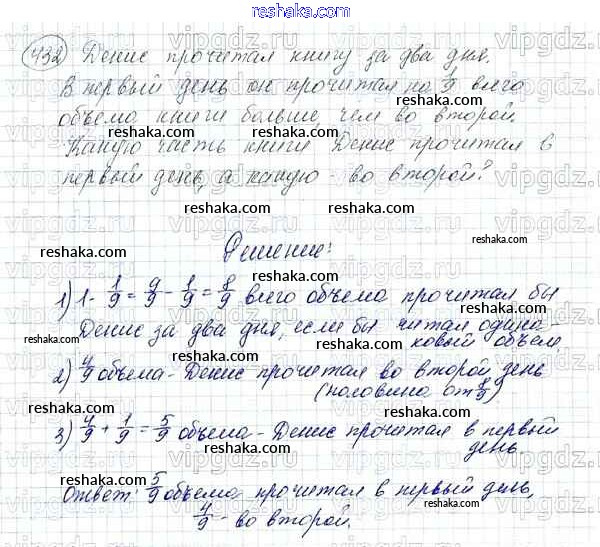 reshaka.com
432) Денис прочитал книгу за два дня.
В первый день он прочитал на 1/9 всего
объема книги больше, чем во второй.
reshaka.com reshaka.com
Какую часть книги Денис прочитал в
первый день, а какую - во второй?
reshaka.com reshaka.com reshaka.com
Решение:
reshaka.com reshaka.com
1) 1 - 1/9 = 9/9 - 1/9 = 8/9 всего объема прочитал бы
reshaka.com
Денис за два дня, если бы читал одина-
reshaka.com
ковый объем.
reshaka.com
2) 4/9 объема - Денис прочитал во второй день
reshaka.com reshaka.com
(половина от 8/9)
3) 4/9 + 1/9 = 5/9 объема - Денис прочитал в первый
reshaka.com reshaka.com
день.
Ответ: 5/9 объема прочитал в первый день,
reshaka.com reshaka.com reshaka.com
4/9 - во второй.
reshaka.com